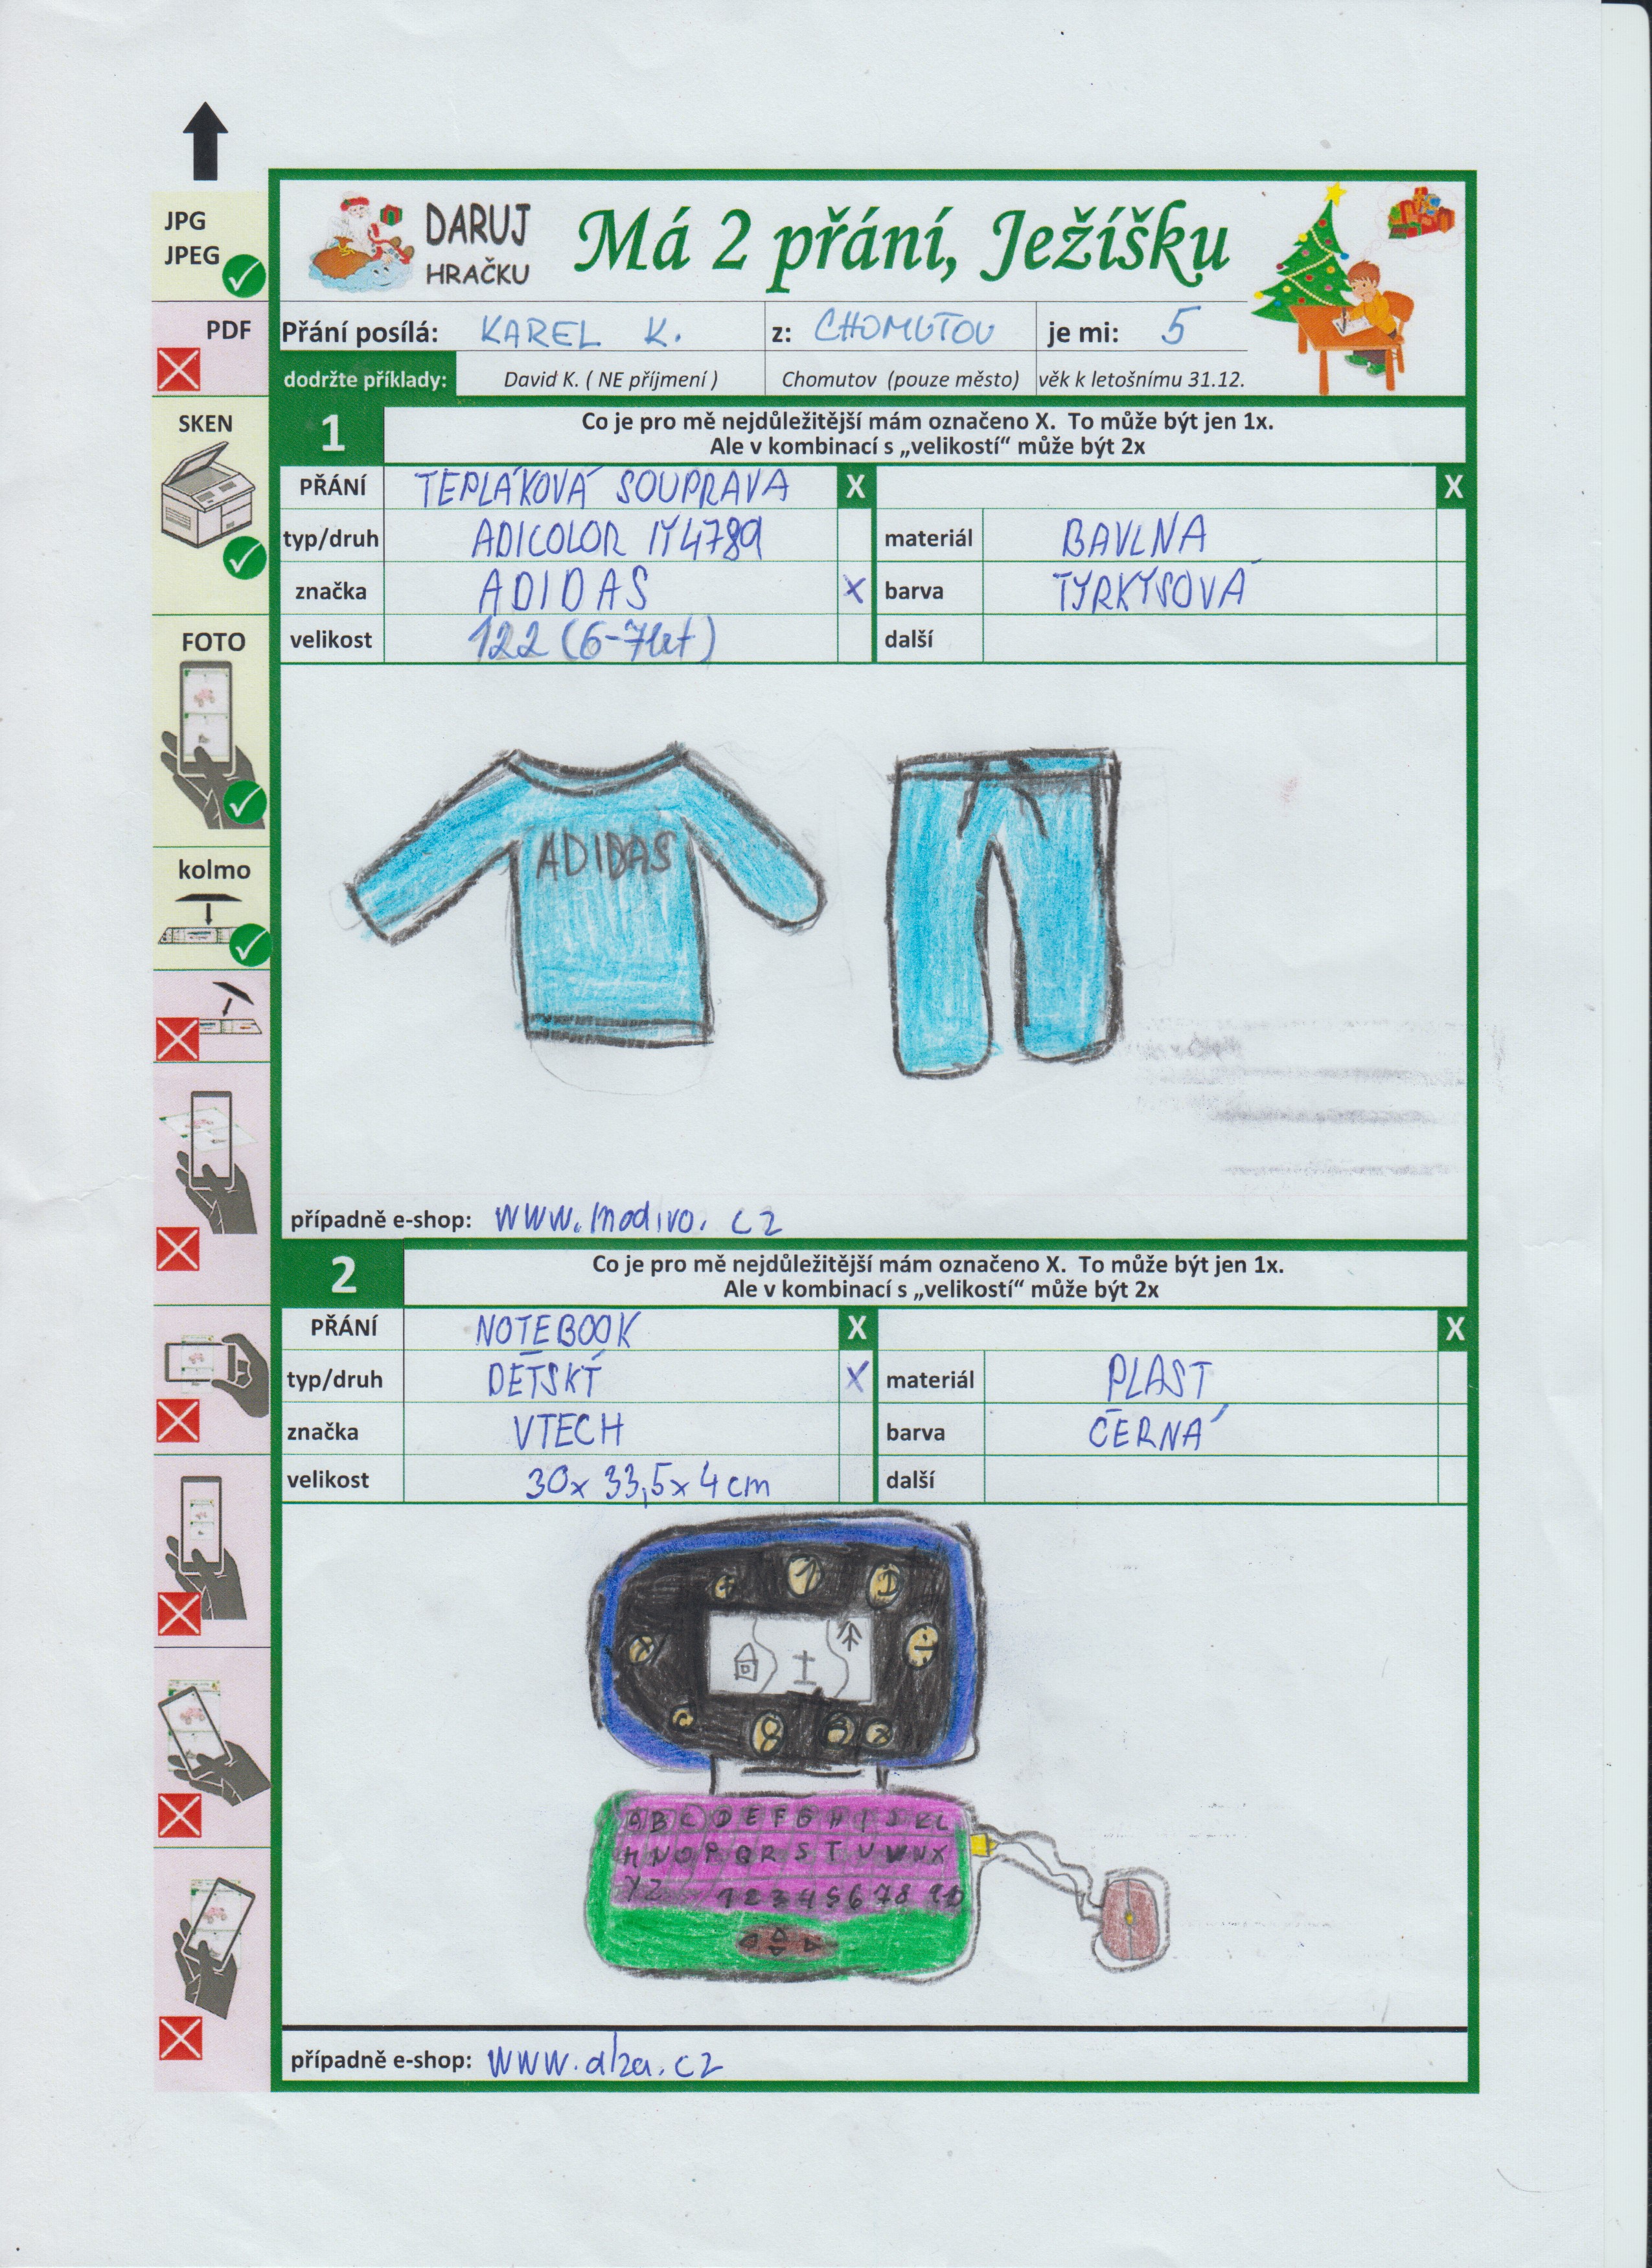 JPG
JPEG
PDF
SKEN
FOTO
kolmo
DARUJ
HRAČKU
Má 2 přání, Ježíšku
Přání posílá: KAREL K. z: CHOMUTOV je mi: 5
dodržte příklady: David K. ( NE příjmení ) Chomutov (pouze město) věk k letošnímu 31.12.
1 Co je pro mě nejdůležitější mám označeno X. To může být jen 1x.
Ale v kombinací s „velikostí“ může být 2x
PŘÁNÍ TEPLÁKOVÁ SOUPRAVA X X
typ/druh ADICOLOR IY4789 materiál BAVLNA
značka ADIDAS X barva TYRKYSOVÁ
velikost 122 (6-7let) další
ADIDAS
případně e-shop: www.modivo.cz
2 Co je pro mě nejdůležitější mám označeno X. To může být jen 1x.
Ale v kombinací s „velikostí“ může být 2x
PŘÁNÍ NOTEBOOK X X
typ/druh DĚTSKÝ X materiál PLAST
značka VTECH barva ČERNÁ
velikost 30x 33,5x 4cm další
A B C D E F G H I J K L
M N O P Q R S T U V W X
Y Z 1 2 3 4 5 6 7 8 9 10
případně e-shop: www.alza.cz